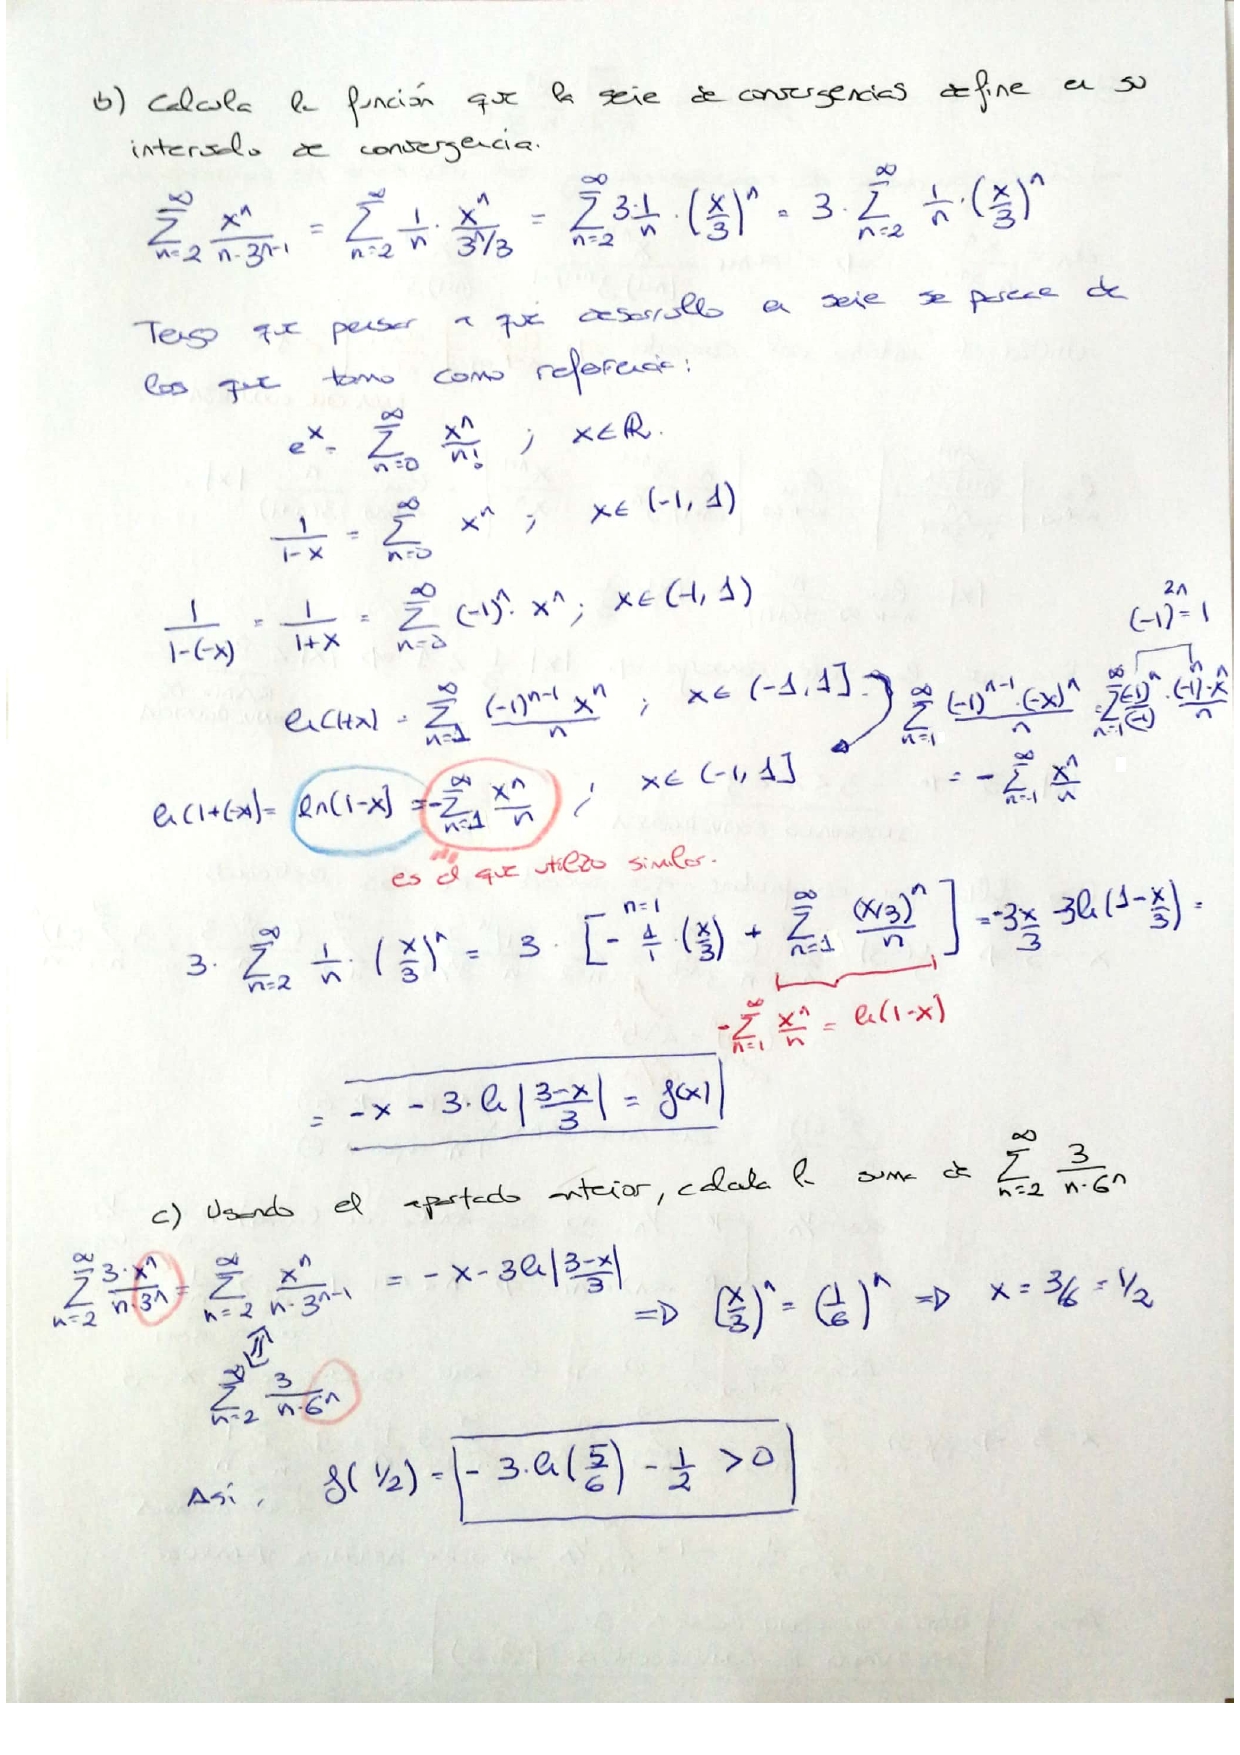 b) Calcula la función que la serie de convergencias define en su
intervalo de convergencia.
∞∑n=2 xⁿ/(n·3ⁿ⁻¹) = ∞∑n=2 1/n · xⁿ/(3ⁿ/3) = ∞∑n=2 3·1/n · (x/3)ⁿ = 3 · ∞∑n=2 1/n · (x/3)ⁿ
Tengo que pensar a qué desarrollo en serie se parece de
los que tomo como referencia:
eˣ = ∞∑n=0 xⁿ/n! ; x∈ℝ.
1/(1-x) = ∞∑n=0 xⁿ ; x∈(-1, 1)
1/(1-(-x)) = 1/(1+x) = ∞∑n=0 (-1)ⁿ · xⁿ ; x∈(-1, 1)
(-1)²ⁿ = 1
ln(1+x) = ∞∑n=1 (-1)ⁿ⁻¹ xⁿ/n ; x∈(-1, 1]. ∞∑n=1 (-1)ⁿ⁻¹·(-x)ⁿ/n = ∞∑n=1 (-1)ⁿ/(-1) · (-1)ⁿ·xⁿ/n
= - ∞∑n=1 xⁿ/n
ln(1+(-x)) = ln(1-x) = - ∞∑n=1 xⁿ/n ; x∈(-1, 1]
es el que utilizo similar.
n=1
3 · ∞∑n=2 1/n · (x/3)ⁿ = 3 · [ - 1/1 · (x/3) + ∞∑n=1 (x/3)ⁿ/n ] = -3x/3 - 3ln(1-x/3) =
- ∞∑n=1 xⁿ/n = ln(1-x)
= -x - 3·ln|(3-x)/3| = f(x)
c) Usando el apartado anterior, calcula la suma de ∞∑n=2 3/(n·6ⁿ)
∞∑n=2 3·xⁿ/(n·3ⁿ) = ∞∑n=2 xⁿ/(n·3ⁿ⁻¹) = -x - 3ln|(3-x)/3| ⇒ (x/3)ⁿ = (1/6)ⁿ ⇒ x = 3/6 = 1/2
∞∑n=2 3/(n·6ⁿ)
Así, f(1/2) = -3·ln(5/6) - 1/2 > 0